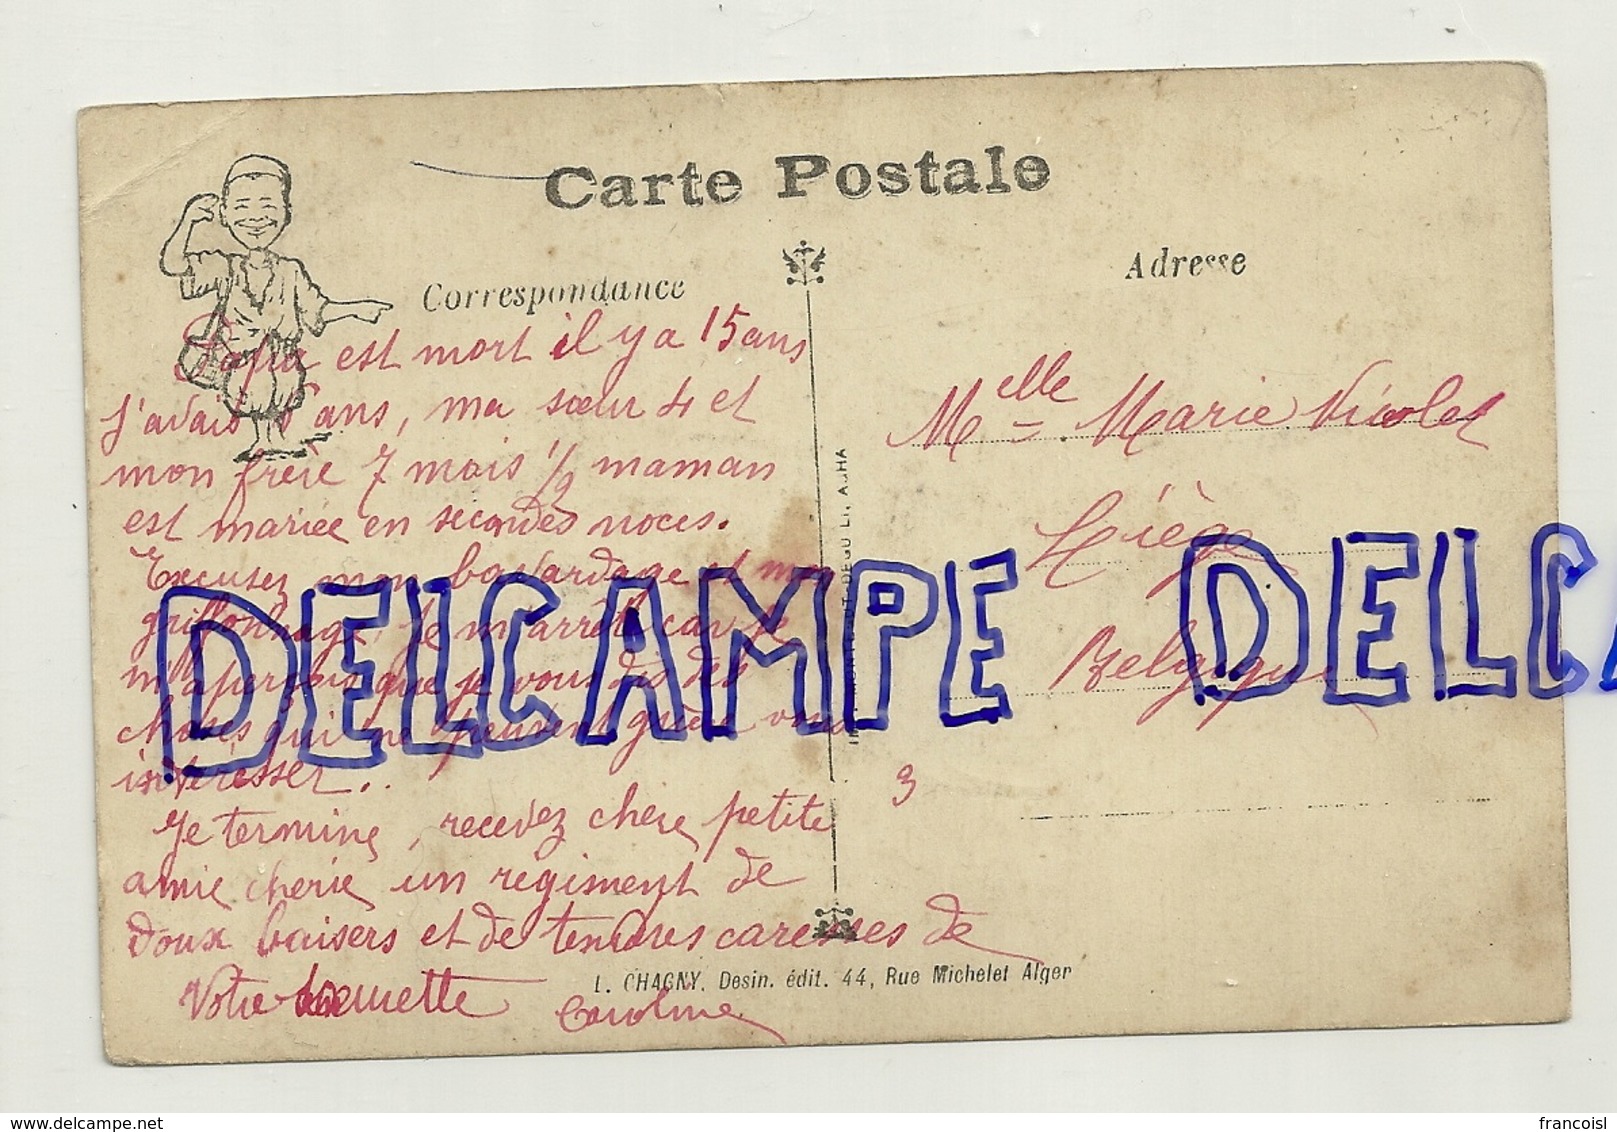 Carte Postale
Correspondance
Adresse
Papa est mort il y a 15 ans
j'avais ans, ma sœur 4 et
mon frère 7 mois 1/2 maman
est mariée en secondes noces.
Excusez mon bavardage et mon
griffonnage, je m'arrête car je
m'aperçois que je vous dis des
choses qui ne peuvent guère vous
intéresser..
Je termine, recevez chère petite
amie chérie un régiment de
doux baisers et de tendres caresses de
Votre
Caroline
Melle Marie Nicolet
Liège
Belgique
3
L. CHAGNY, Desin. édit. 44, Rue Michelet Alger
DELCAMPE DELCA
delcampe.net
francoisl